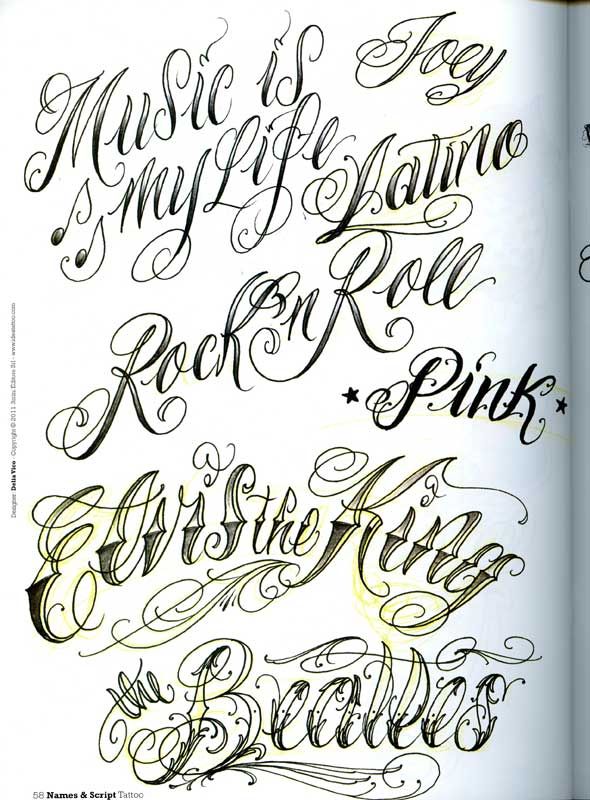 Music is
Joey
my Life
Latino
Rock'n Roll
Pink
Elvis the King
the
Beatles
Designer: Delia Vico - Copyright © 2011 3ntini Editore Srl - www.ideatattoo.com
58 Names & Script Tattoo